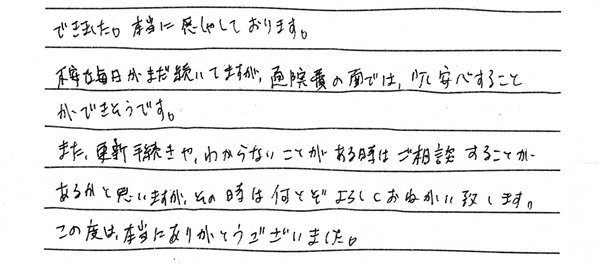 できました。本当に感謝しております。
不安な毎日がまだ続いてますが、通院費の面では、少し安心すること
ができそうです。
また、更新手続きや、わからないことがある時はご相談することが
あるかと思いますが、その時は何とぞよろしくおねがい致します。
この度は、本当にありがとうございました。